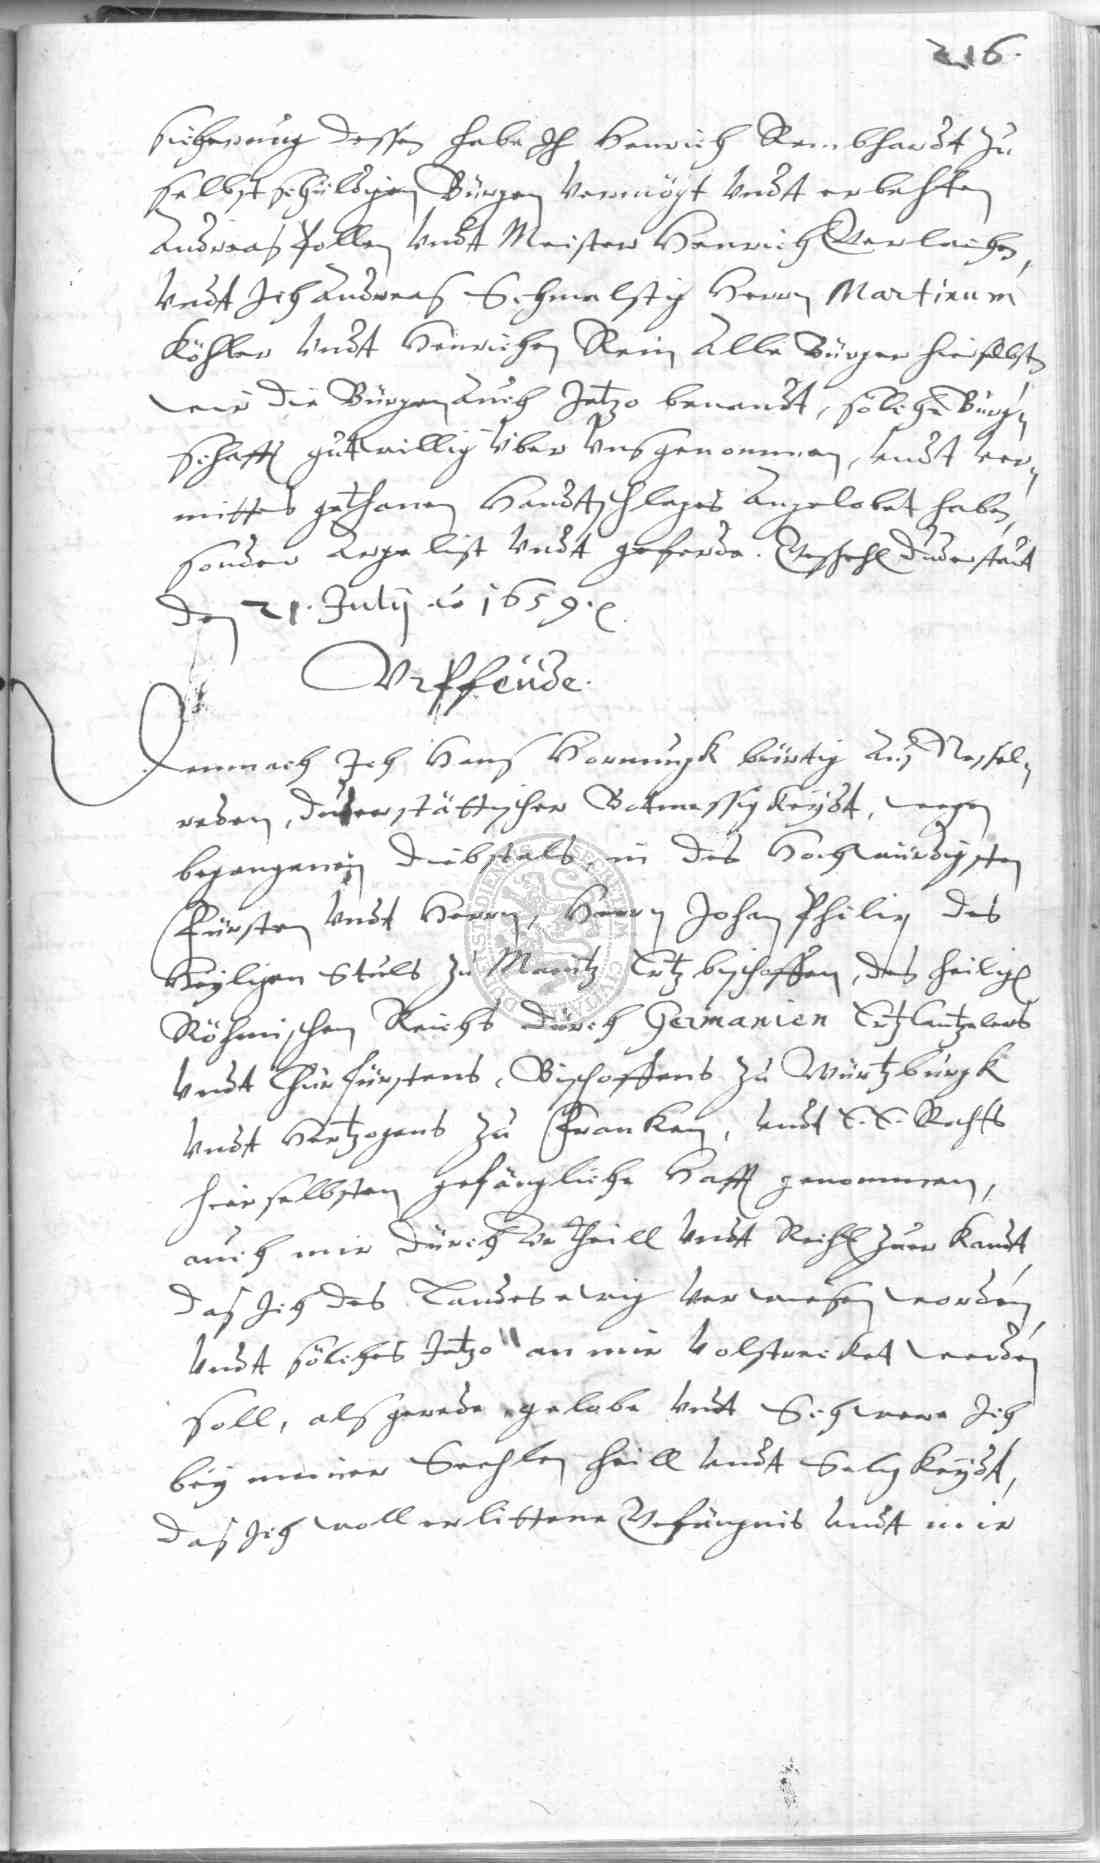 216.
sicherung dessen habe Ich Henrich Reinbhardt zu
selbst schüldigen Bürgen vermögt undt erbehten
Andreas Pollen undt Meister Henrich Gerlachen,
undt Ich Andreas Schmalstig Herrn Martinum
Köhler undt Heinrichen Rein Alle Bürger hierselbsten
wir die Bürgen Auch Jetzo benandt, solche Bürg¬
schafft gutwillig über uns genommen, undt ver¬
mittels gethanen Handtschlages Angelobet haben,
sonder Argelist undt geferde. Geschehl Duderstadt
den 21. Julij Ao 1659.
Urpfeüde.
Demnach Ich Hans Hornungk bürtig Aus Nessel¬
reden, Duderstättischer Bottmessigkeydt, wegen
begangenen Diebstals, in des Hochwürdigsten
Fürsten undt Herrn, Herrn Johan Philip des
Heyligen Stuls zu Maintz Ertzbischoffen, des heilig
Röhmischen Reichs durch Germanien Ertzcantzelers
undt Churfürstens, Bischoffens zu Würtzburgk
undt Hertzogens zu Francken, undt E. E. Rahts
hierselbsten gefängliche Hafft genommen,
auch mir durch Urtheill undt Recht zuer kandt,
das Ich des Landes ewig verwiesen worden,
undt solches Jetzo an mir volstrecket werden
soll, als gerede gelobe undt Schwere Ich
bey meiner Seehlen heill undt Seligkeydt,
das Ich woll erlittene Gefängnis undt mir
DUDERSTADIENSIS CIVITATIS